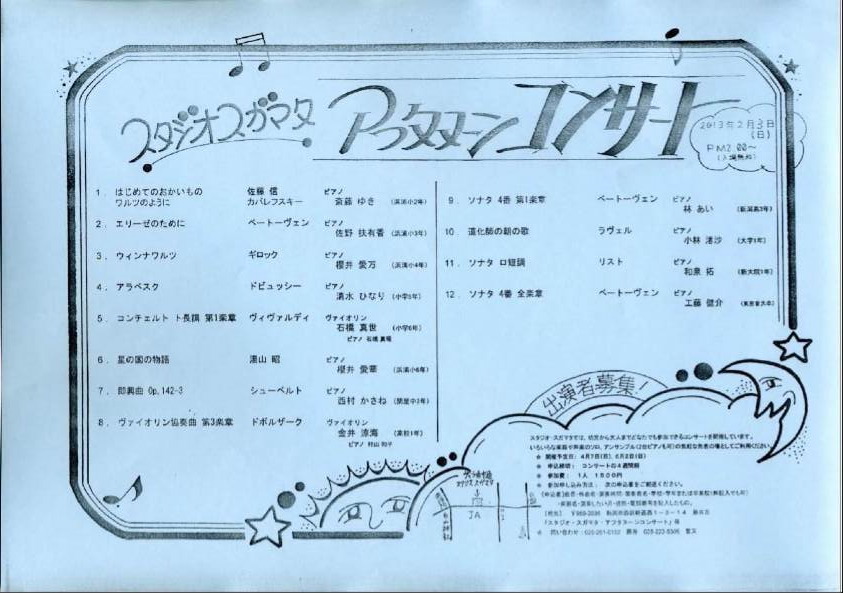 スタジオスガマタ アフタヌーン コンサート
2013年2月3日
(日)
PM2:00~
(入場無料)
1. はじめてのおかいもの 佐藤 信 ピアノ
ワルツのように カバレフスキー 斎藤 ゆき (浜浦小2年)
2. エリーゼのために ベートーヴェン ピアノ
佐野 扶有香 (浜浦小3年)
3. ウィンナワルツ ギロック ピアノ
櫻井 愛万 (浜浦小4年)
4. アラベスク ドビュッシー ピアノ
清水 ひなり (小学5年)
5. コンチェルト ト長調 第1楽章 ヴィヴァルディ ヴァイオリン
石橋 真世 (小学6年)
ピアノ 石橋
6. 星の国の物語 湯山 昭 ピアノ
櫻井 愛華 (浜浦小6年)
7. 即興曲 Op.142-3 シューベルト ピアノ
西村 かさね (関屋中3年)
8. ヴァイオリン協奏曲 第3楽章 ドボルザーク ヴァイオリン
金井 涼海 (高校1年)
ピアノ 村山 和子
9. ソナタ 4番 第1楽章 ベートーヴェン ピアノ
林 あい (新潟高3年)
10. 道化師の朝の歌 ラヴェル ピアノ
小林 渚沙 (大学1年)
11. ソナタ ロ短調 リスト ピアノ
和泉 拓 (新大院1年)
12. ソナタ 4番 全楽章 ベートーヴェン ピアノ
工藤 健介 (東京音大卒)
出演者募集!
スタジオ・スガマタでは、幼児から大人までどなたでも参加できるコンサートを開催しています。
いろいろな楽器や声楽のソロ、アンサンブル(2台ピアノも可)の気軽な発表の場としてご利用ください。
★ 開催予定日: 4月7日(日), 6月2日(日)
★ 申込締切: コンサートの4週間前
★ 参加費: 1人 1500円
★ 参加申し込み方法: 次の申込書をご郵送ください。
「スタジオ・スガマタ・アフタヌーンコンサート」係
JA